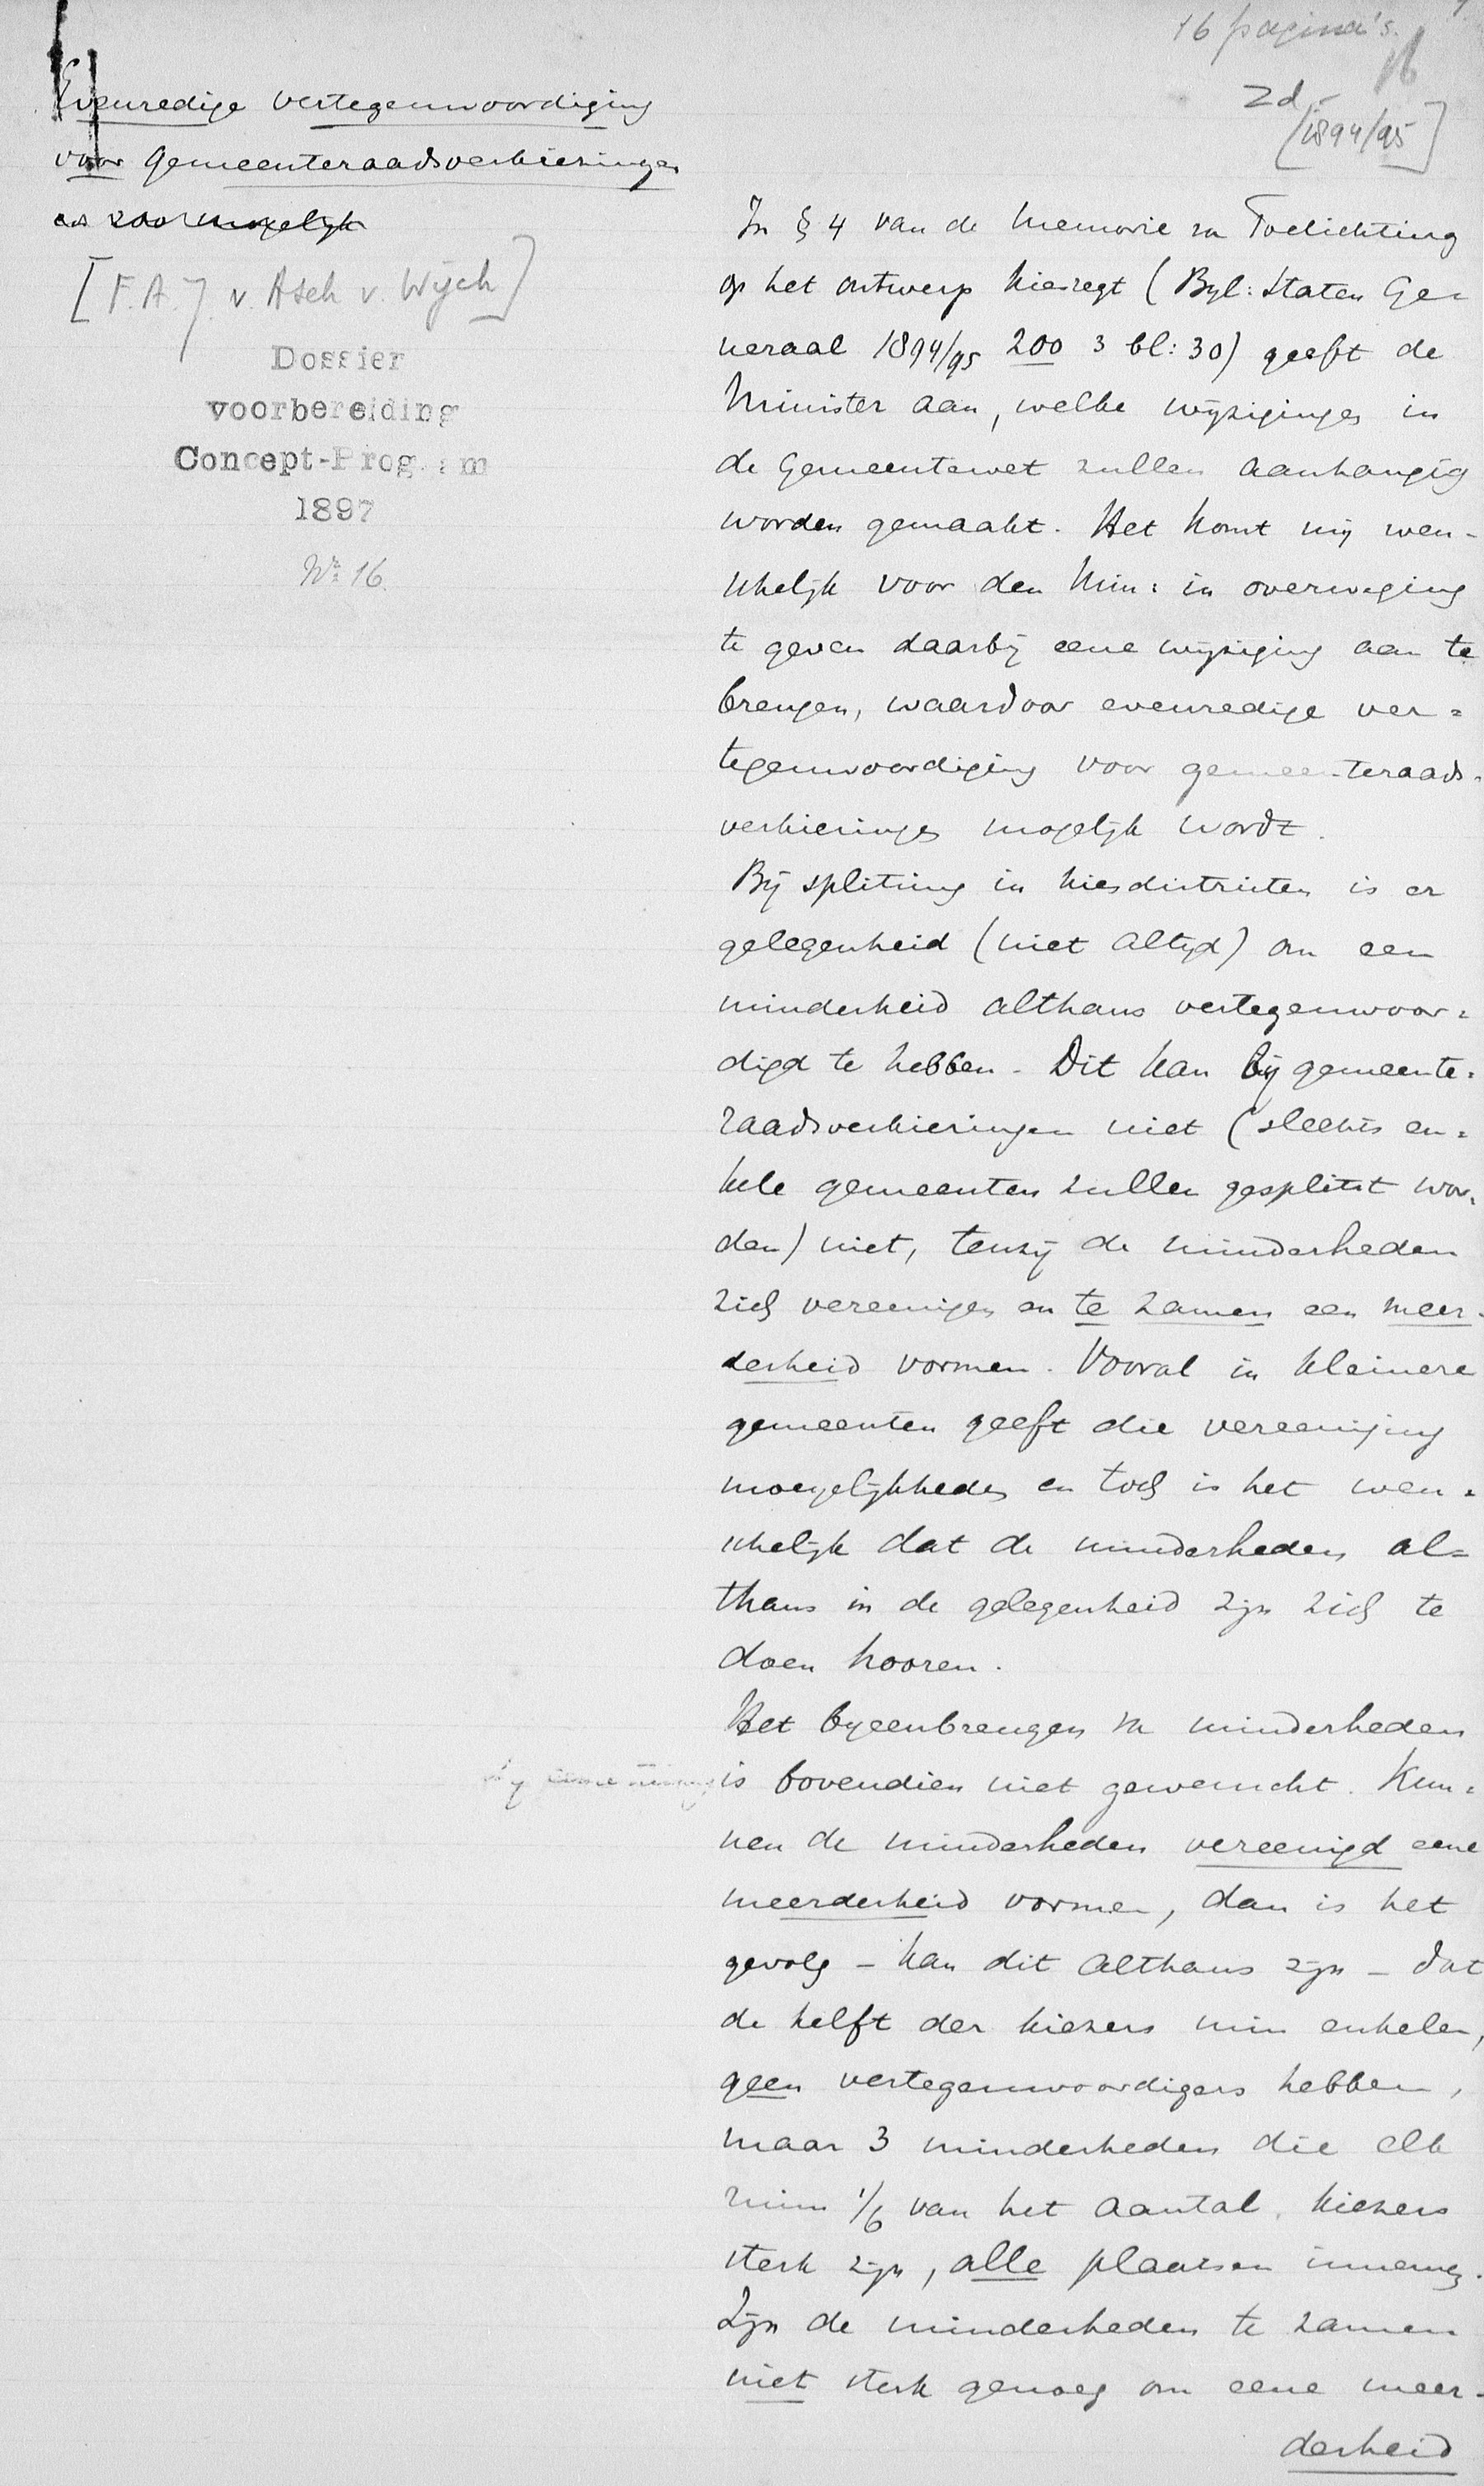 16 pagina's.
16
Zd.-
[1894/95]
Evenredige vertegenwoordiging
voor gemeenteraadsverkiezingen
zoo mogelijk
[F.A.J. v. Asch v. Wijck]
Dossier
voorbereiding
Concept-Program
1897
No. 16.
In § 4 van de Memorie v. Toelichting
op het ontwerp Kieswet (Byl: Staten Ge-
neraal 1894/95 200 3 bl: 30) geeft de
Minister aan, welke wijzigingen in
de Gemeentewet zullen aanhangig
worden gemaakt. Het komt mij wen-
schelijk voor den Min: in overweging
te geven daarbij eene wijziging aan te
brengen, waardoor evenredige ver=
tegenwoordiging voor gemeenteraads-
verkiezingen mogelijk wordt.
Bij splitsing in kiesdistricten is er
gelegenheid (niet altijd) om een
minderheid althans vertegenwoor=
digd te hebben. Dit kan bij gemeente=
raadsverkiezingen niet (slechts en=
kele gemeenten zullen gesplitst wor=
den) niet, tenzij de minderheden
zich vereenigen en te zamen een meer-
derheid vormen. Vooral in kleinere
gemeenten geeft die vereeniging
moeijelijkheden en toch is het wen=
schelijk dat de minderheden al=
thans in de gelegenheid zijn zich te
doen hooren.
Het byeenbrengen v. minderheden
is bovendien niet gewenscht. Kun=
nen de minderheden vereenigd eene
meerderheid vormen, dan is het
gevolg – kan dit althans zijn – dat
de helft der kiezers min enkelen,
geen vertegenwoordigers hebben,
maar 3 minderheden die elk
ruim 1/6 van het aantal kiezers
sterk zijn, alle plaatsen innemen.
Zijn de minderheden te zamen
niet sterk genoeg om eene meer-
derheid